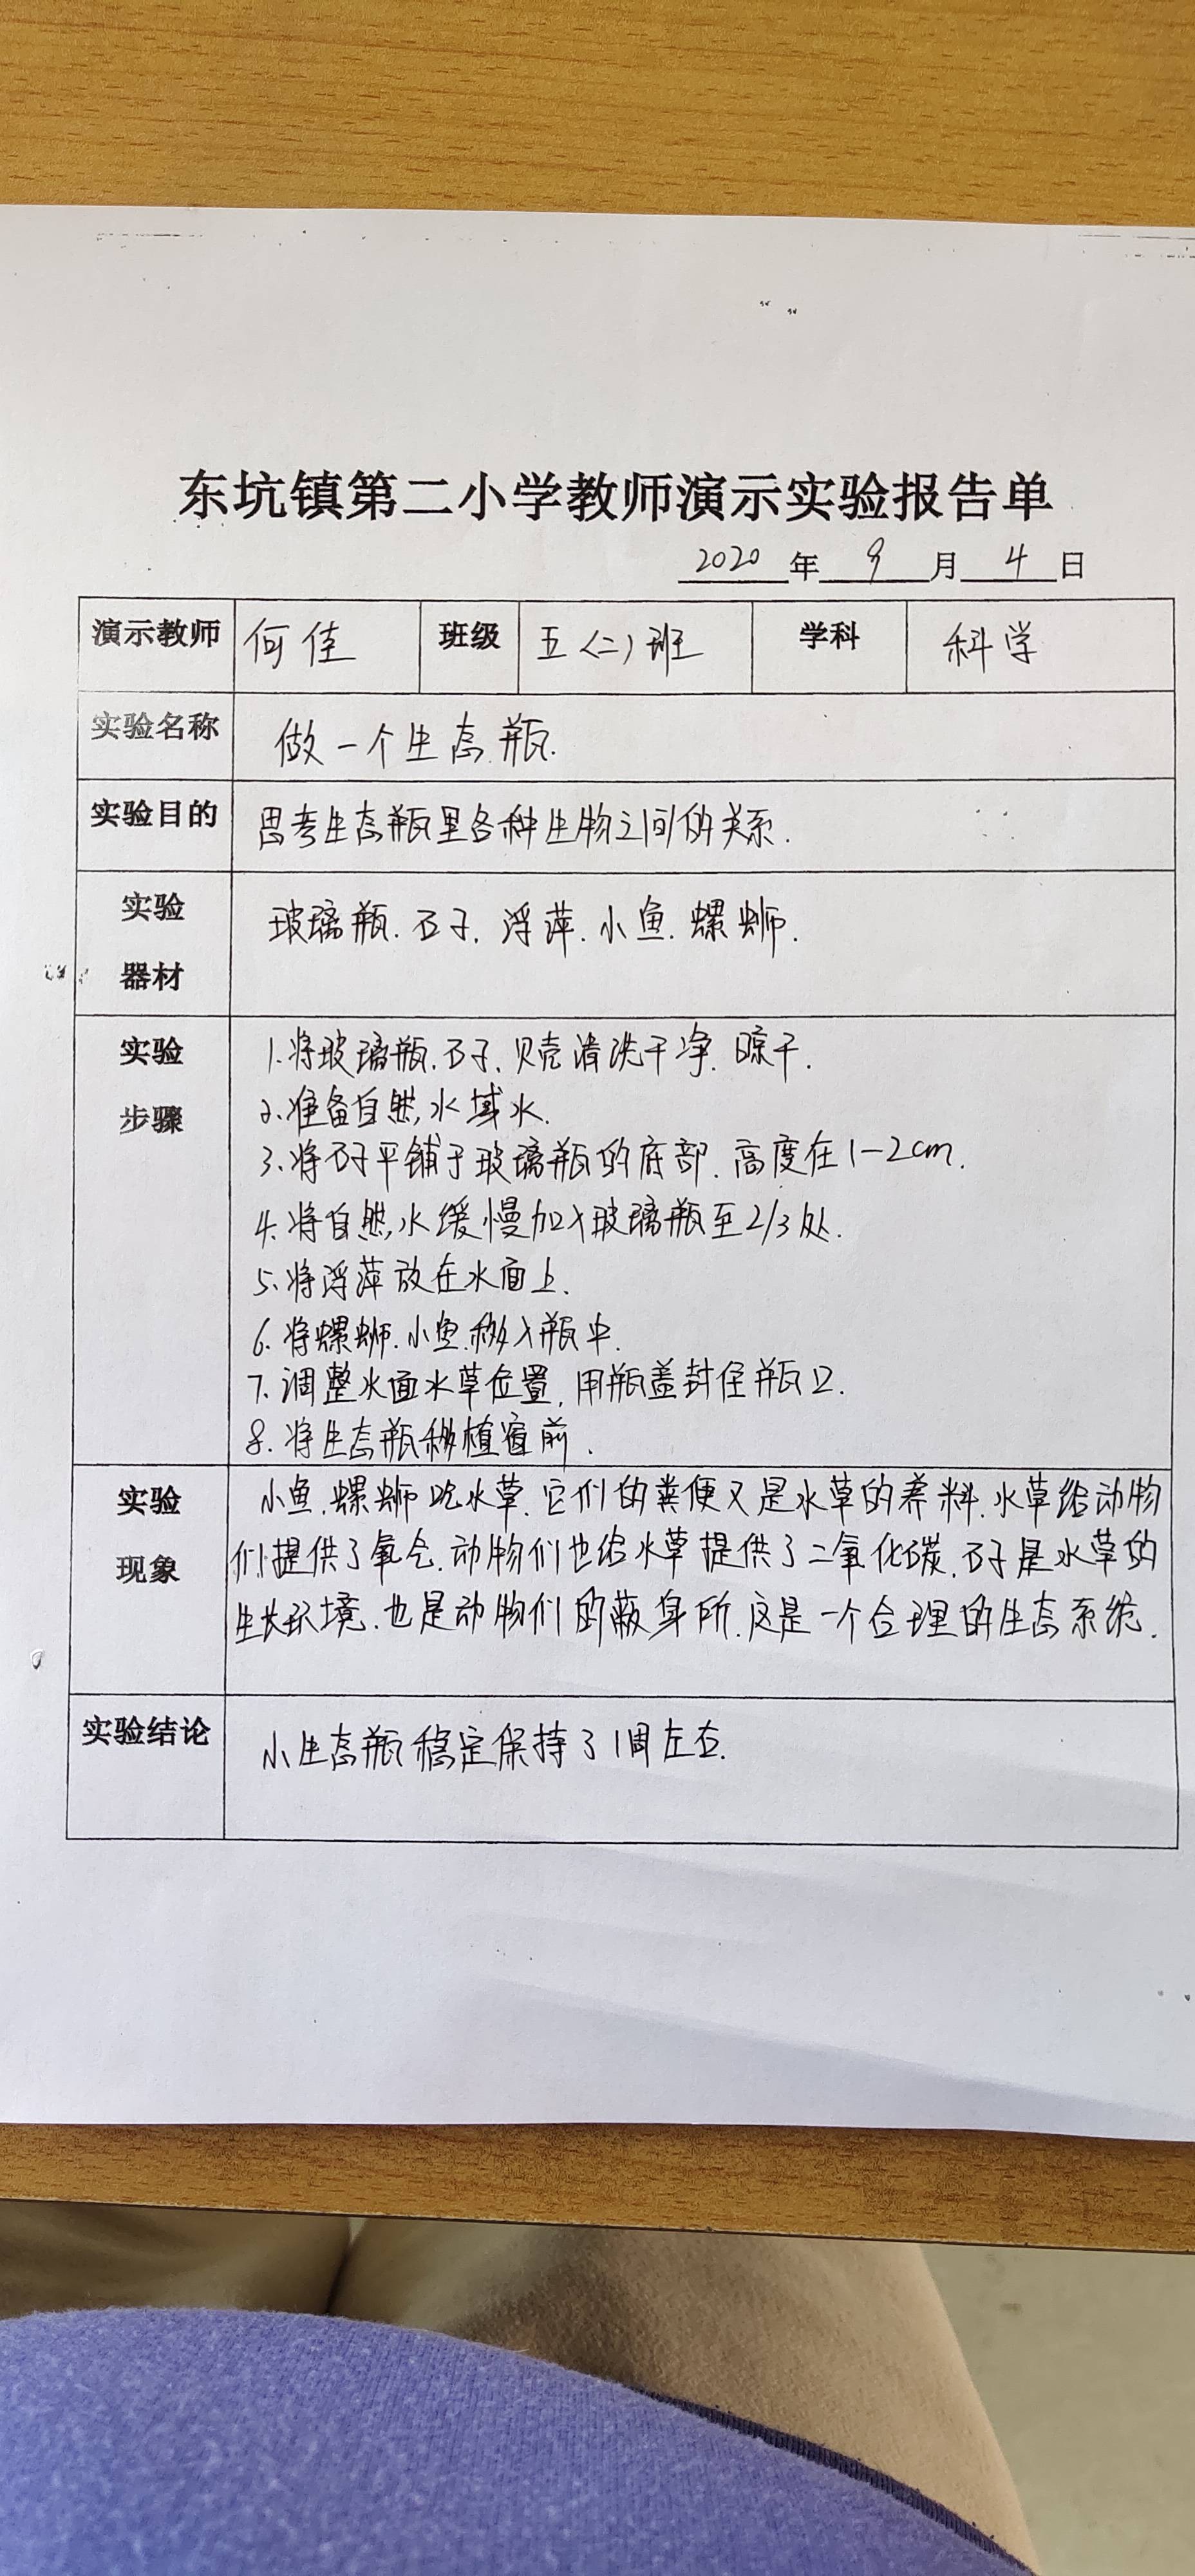 东坑镇第二小学教师演示实验报告单
2020 年 9 月 4 日
演示教师 何佳 班级 五(二)班 学科 科学
实验名称 做一个生态瓶.
实验目的 思考生态瓶里各种生物之间的关系.
实验器材 玻璃瓶.石子.浮萍.小鱼.螺蛳.
实验步骤
1.将玻璃瓶.石子.贝壳清洗干净.晾干.
2.准备自然水域水.
3.将石子平铺于玻璃瓶的底部.高度在1-2cm.
4.将自然水缓慢加入玻璃瓶至2/3处.
5.将浮萍放在水面上.
6.将螺蛳.小鱼移入瓶中.
7.调整水面水草位置,用瓶盖封住瓶口.
8.将生态瓶移植窗前.
实验现象
小鱼.螺蛳吃水草.它们的粪便又是水草的养料.水草给动物
们提供了氧气.动物们也给水草提供了二氧化碳.石子是水草的
生长环境.也是动物们的蔽身所.这是一个合理的生态系统.
实验结论 小生态瓶稳定保持了1周左右.